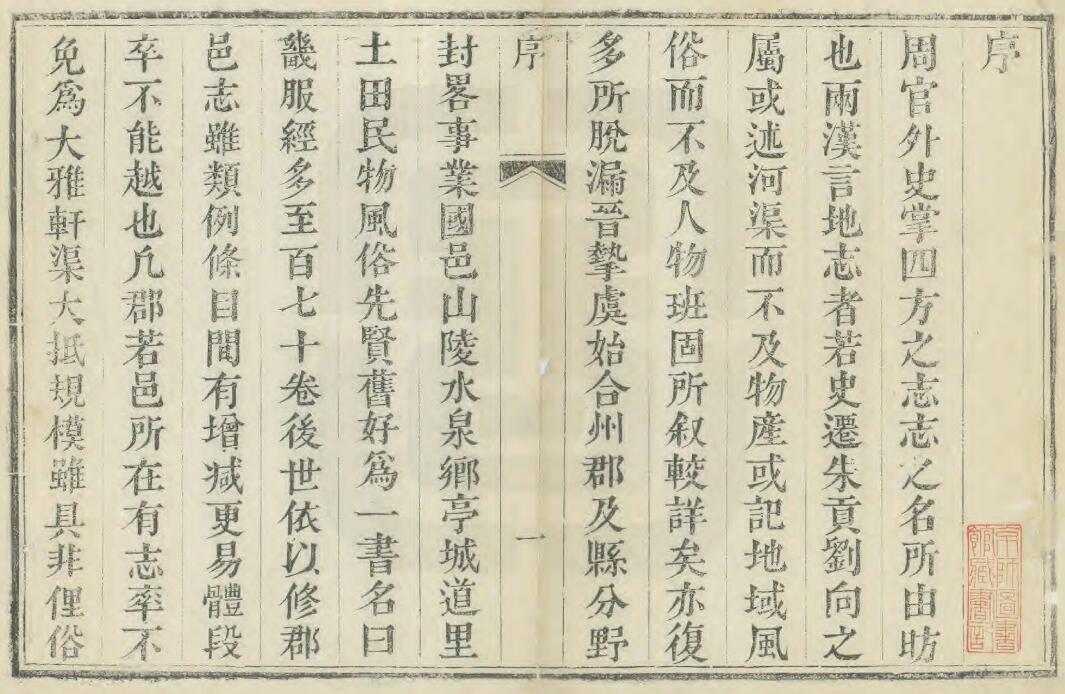 序
周官外史掌四方之志志之名所由昉
也兩漢言地志者若史遷朱貢劉向之
屬或述河渠而不及物產或記地域風
俗而不及人物班固所叙較詳矣亦復
多所脫漏晉摯虞始合州郡及縣分野
序 一
封畧事業國邑山陵水泉鄉亭城道里
土田民物風俗先賢舊好爲一書名曰
畿服經多至百七十卷後世依以修郡
邑志雖類例條目間有增减更易體段
卒不能越也凡郡若邑所在有志率不
免爲大雅軒渠大抵規模雖具非俚俗